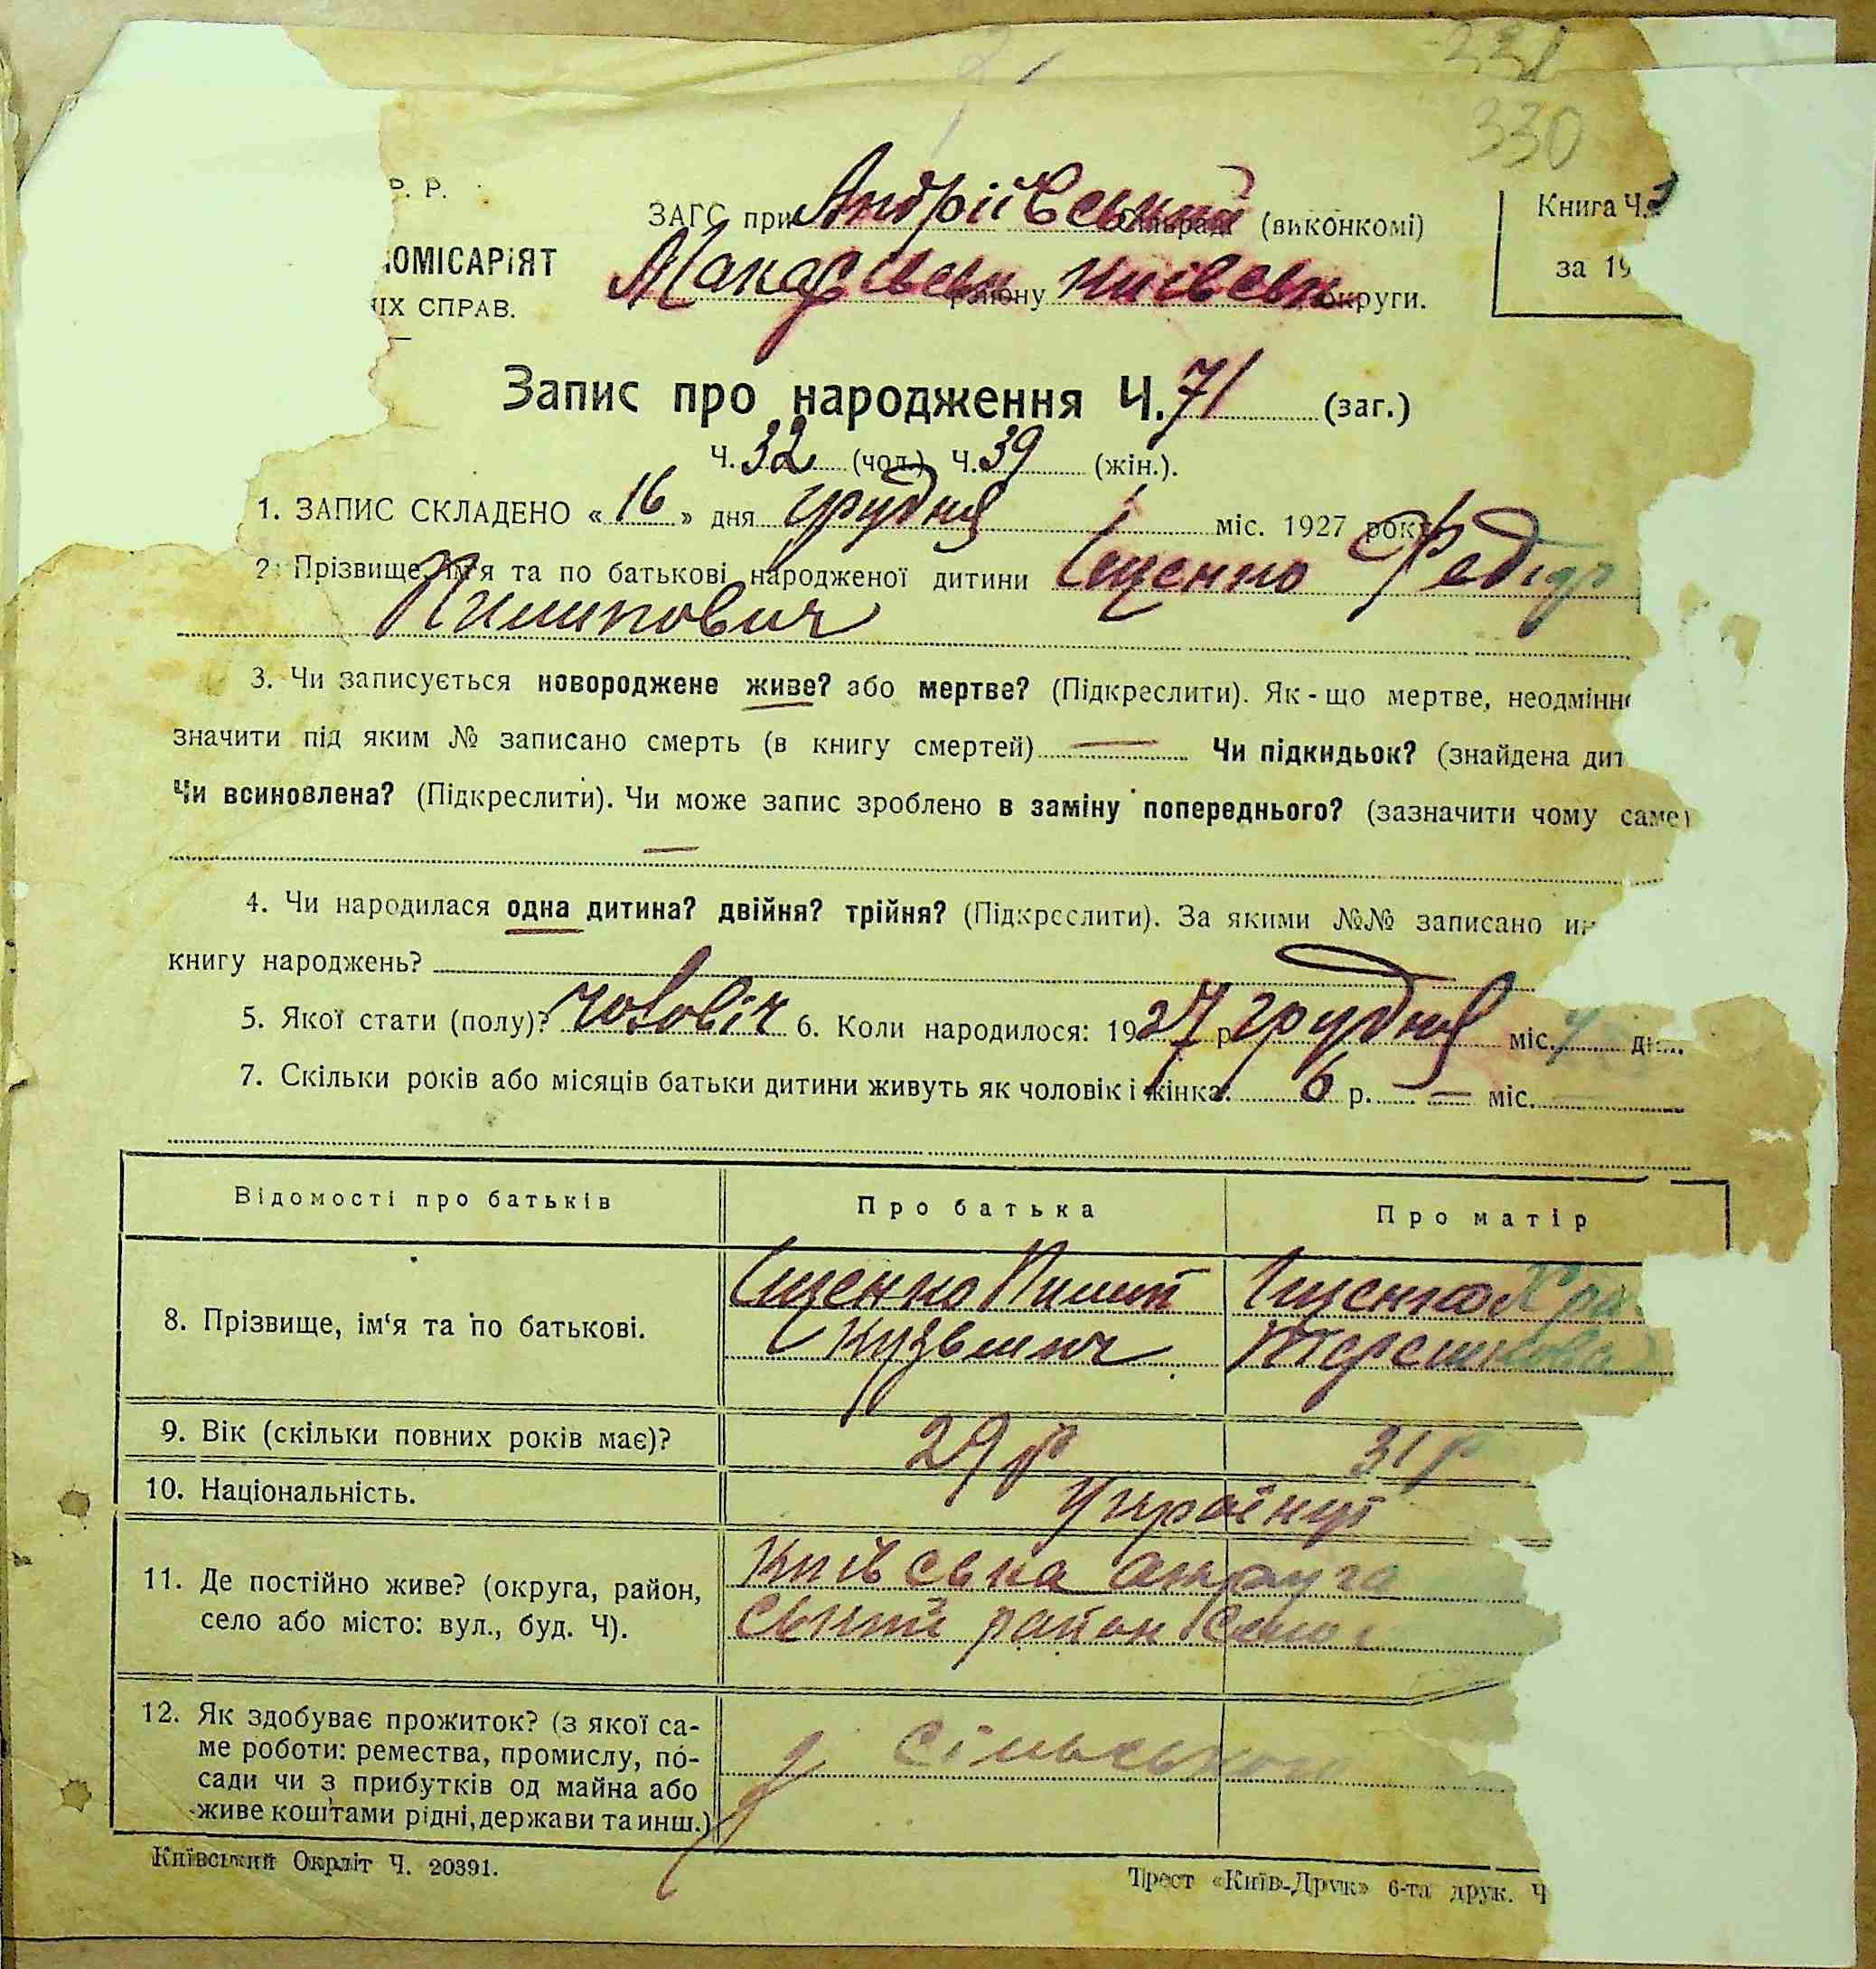 331
330
Р. Р.
ОМІСАРІЯТ
ІХ СПРАВ.
ЗАГС при Андріївський сільраді (виконкомі)
Макарівськ району Київськ округи.
Книга Ч.
за 19
Запис про народження Ч. 71 (заг.)
Ч. 32 (чол.) Ч. 39 (жін.).
1. ЗАПИС СКЛАДЕНО « 16 » дня грудня міс. 1927 року
2. Прізвище, ім'я та по батькові народженої дитини Іщенко Федір
Пилипович
3. Чи записується новороджене живе? або мертве? (Підкреслити). Як-що мертве, неодмінно
значити під яким № записано смерть (в книгу смертей) — Чи підкидьок? (знайдена дит
Чи всиновлена? (Підкреслити). Чи може запис зроблено в заміну попереднього? (зазначити чому саме)
—
4. Чи народилася одна дитина? двійня? трійня? (Підкреслити). За якими №№ записано ин
книгу народжень?
5. Якої стати (полу)? чоловіч 6. Коли народилося: 1927 р. грудня міс. 7 дн.
7. Скільки років або місяців батьки дитини живуть як чоловік і жінка? 6 р. — міс.
Відомості про батьків Про батька Про матір
8. Прізвище, ім'я та по батькові. Іщенко Пилип Іщенко
Кузьмич
9. Вік (скільки повних років має)? 29 р 31 р
10. Національність. Українці
11. Де постійно живе? (округа, район, село або місто: вул., буд. Ч). Київська округа
ський район село
12. Як здобуває прожиток? (з якої са-
ме роботи: ремества, промислу, по-
сади чи з прибутків од майна або
живе коштами рідні, держави та инш.)
з сільського
Київський Окрліт Ч. 20391.
Трест «Київ-Друк» 6-та друк. Ч